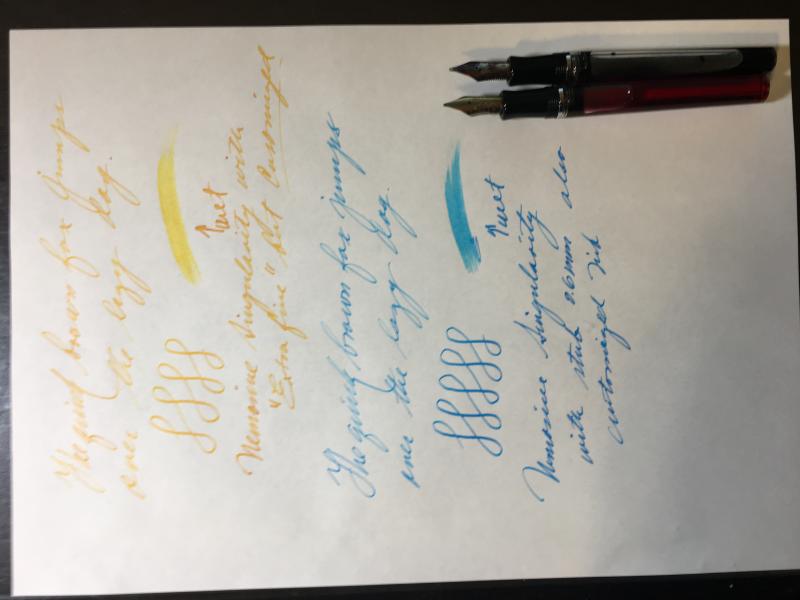 The quick brown fox jumps
over the lazy dog.
↑wet
Nemosine Singularity with
"Extra fine" but customized
The quick brown fox jumps
over the lazy dog.
↑wet
Nemosine Singularity
with stub 0.6mm also
customized nib